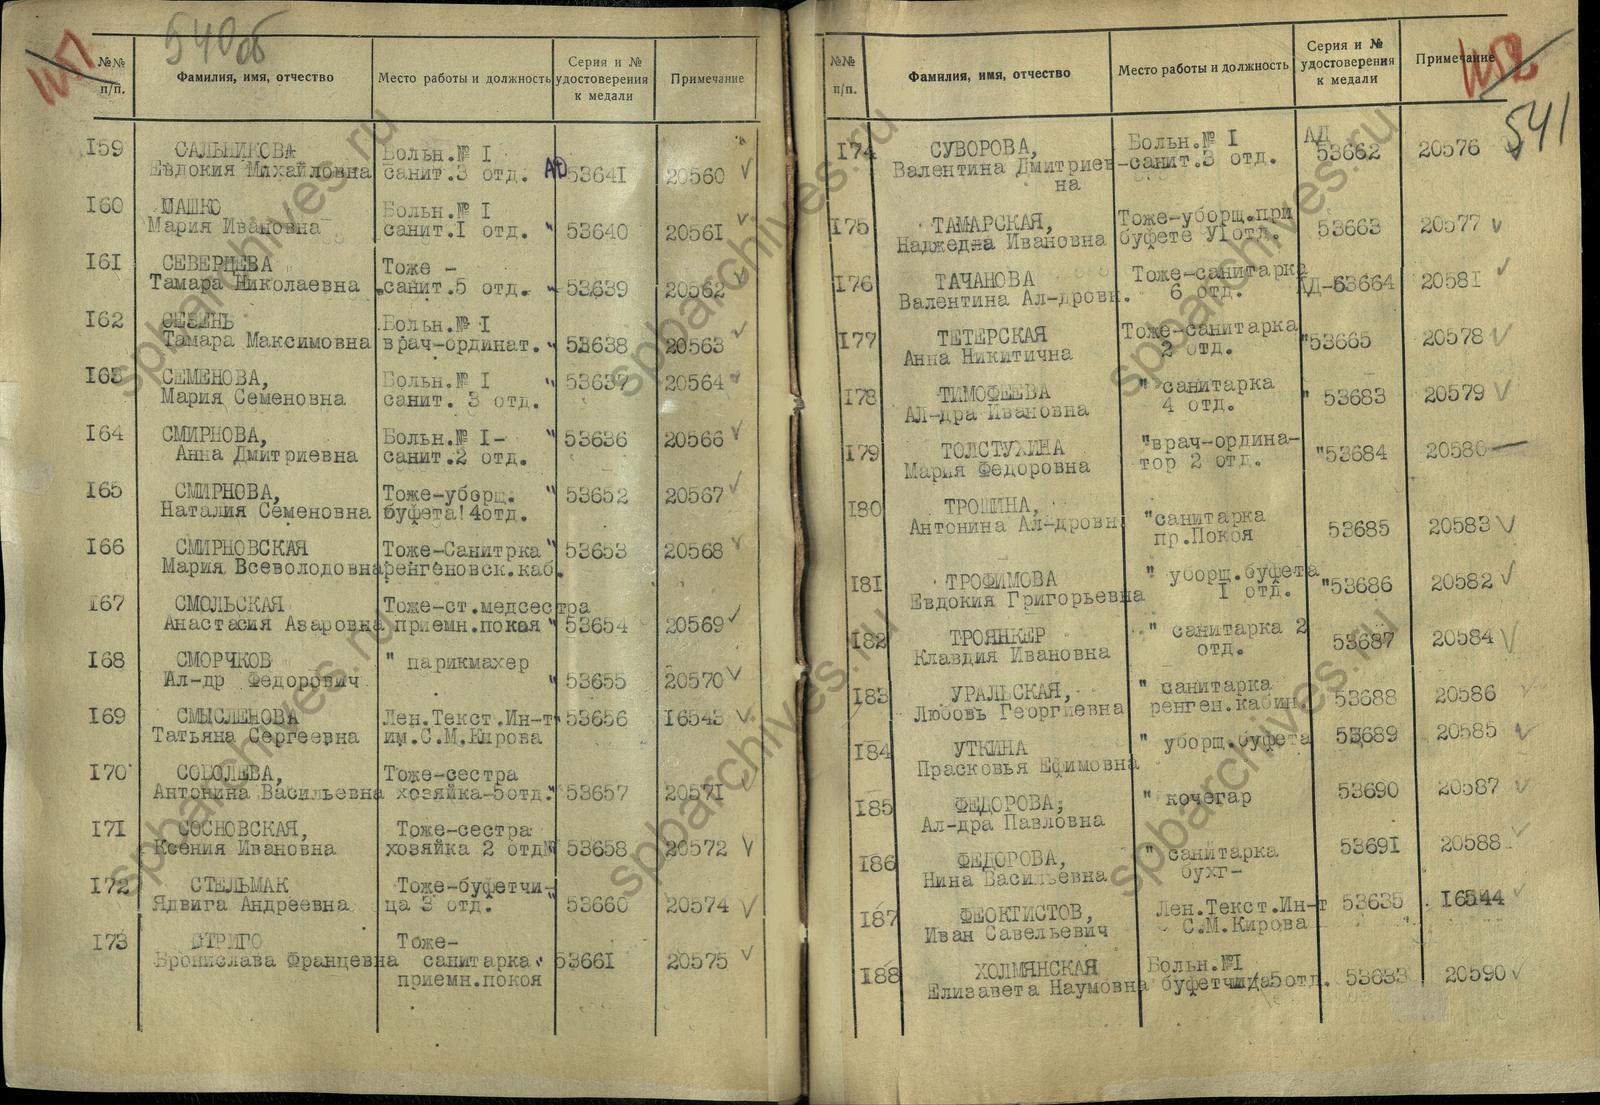 540об
№№ п/п. Фамилия, имя, отчество Место работы и должность Серия и № удостоверения к медали Примечание
159 САЛЬНИКОВА Больн.№ I
Евдокия Михайловна санит.3 отд. АД 53641 20560
160 МАШКО Больн.№ I
Мария Ивановна санит.I отд. " 53640 20561
161 СЕВЕРЦЕВА Тоже -
Тамара Николаевна санит.5 отд. " 53639 20562
162 СЕЗЕНЬ Больн.№ I
Тамара Максимовна врач-ординат. " 53638 20563
163 СЕМЕНОВА, Больн.№ I " 53637 20564
Мария Семеновна санит. 3 отд.
164 СМИРНОВА, Больн.№ I- " 53636 20566
Анна Дмитриевна санит.2 отд.
165 СМИРНОВА, Тоже-уборщ. " 53652 20567
Наталия Семеновна буфета!4отд.
166 СМИРНОВСКАЯ Тоже-Санитрка " 53653 20568
Мария Всеволодовна ренгеновск.каб.
167 СМОЛЬСКАЯ Тоже-ст.медсестра
Анастасия Азаровна приемн.покоя " 53654 20569
168 СМОРЧКОВ " парикмахер
Ал-др Федорович " 53655 20570
169 СМЫСЛЕНОВА Лен.Текст.Ин-т " 53656 16543
Татьяна Сергеевна им.С.М.Кирова
170 СОБОЛЕВА, Тоже-сестра
Антонина Васильевна хозяйка-5отд. " 53657 20571
171 СОСНОВСКАЯ, Тоже-сестра
Ксения Ивановна хозяйка 2 отд " 53658 20572
172 СТЕЛЬМАК Тоже-буфетчи-
Ядвига Андреевна ца 3 отд. " 53660 20574
173 СТРИГО Тоже-
Бронислава Францевна санитарка " 53661 20575
приемн.покоя
541
№№ п/п. Фамилия, имя, отчество Место работы и должность Серия и № удостоверения к медали Примечание
174 СУВОРОВА, Больн.№ I АД 53662 20576
Валентина Дмитриев- санит.3 отд.
на
175 ТАМАРСКАЯ, Тоже-уборщ.при 53663 20577
Наджедна Ивановна буфете У1отд.
176 ТАЧАНОВА Тоже-санитарка АД-53664 20581
Валентина Ал-дровн. 6 отд.
177 ТЕТЕРСКАЯ Тоже-санитарка "53665 20578
Анна Никитична 2 отд.
178 ТИМОФЕЕВА " санитарка " 53683 20579
Ал-дра Ивановна 4 отд.
179 ТОЛСТУХИНА "врач-ордина- "53684 20580
Мария Федоровна тор 2 отд.
180 ТРОШИНА, "санитарка
Антонина Ал-дровн пр.Покоя 53685 20583
181 ТРОФИМОВА " уборщ.буфета "53686 20582
Евдокия Григорьевна I отд.
182 ТРОЯНКЕР " санитарка 2 53687 20584
Клавдия Ивановна отд.
183 УРАЛЬСКАЯ, " санитарка 53688 20586
Любовь Георгиевна ренген.кабин.
184 УТКИНА " уборщ.буфета 53689 20585
Прасковья Ефимовна
185 ФЕДОРОВА, " кочегар 53690 20587
Ал-дра Павловна
186 ФЕДОРОВА, " санитарка 53691 20588
Нина Васильевна бухг-
187 ФЕОКТИСТОВ, Лен.Текст.Ин-т 53635 16544
Иван Савельевич С.М.Кирова
188 ХОЛМЯНСКАЯ Больн.№I
Елизавета Наумовна буфетчица5отд. 53633 20590
spbarchives.ru
spbarchives.ru
spbarchives.ru
spbarchives.ru
spbarchives.ru
spbarchives.ru